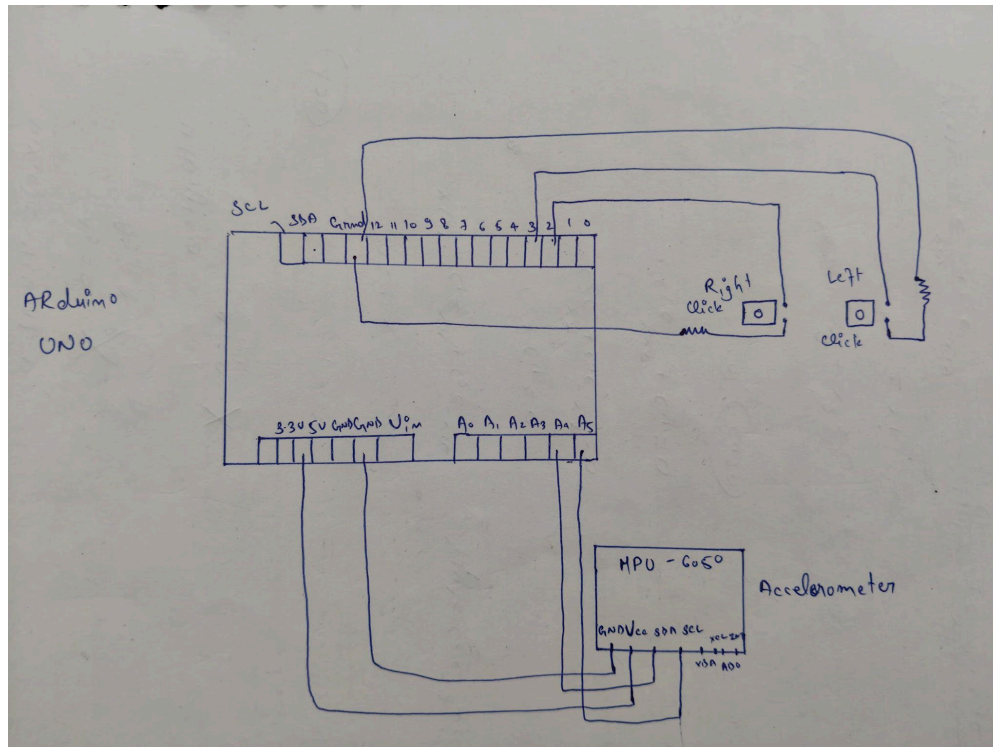 SCL
SDA Grnd 12 11 10 9 8 7 6 5 4 3 2 1 0
ARduino
UNO
Right
Click
Left
Click
3.3V 5V GND GND Vin
A0 A1 A2 A3 A4 A5
MPU - 6050
Accelorometer
GND Vcc SDA SCL
XDA
XCL
AD0